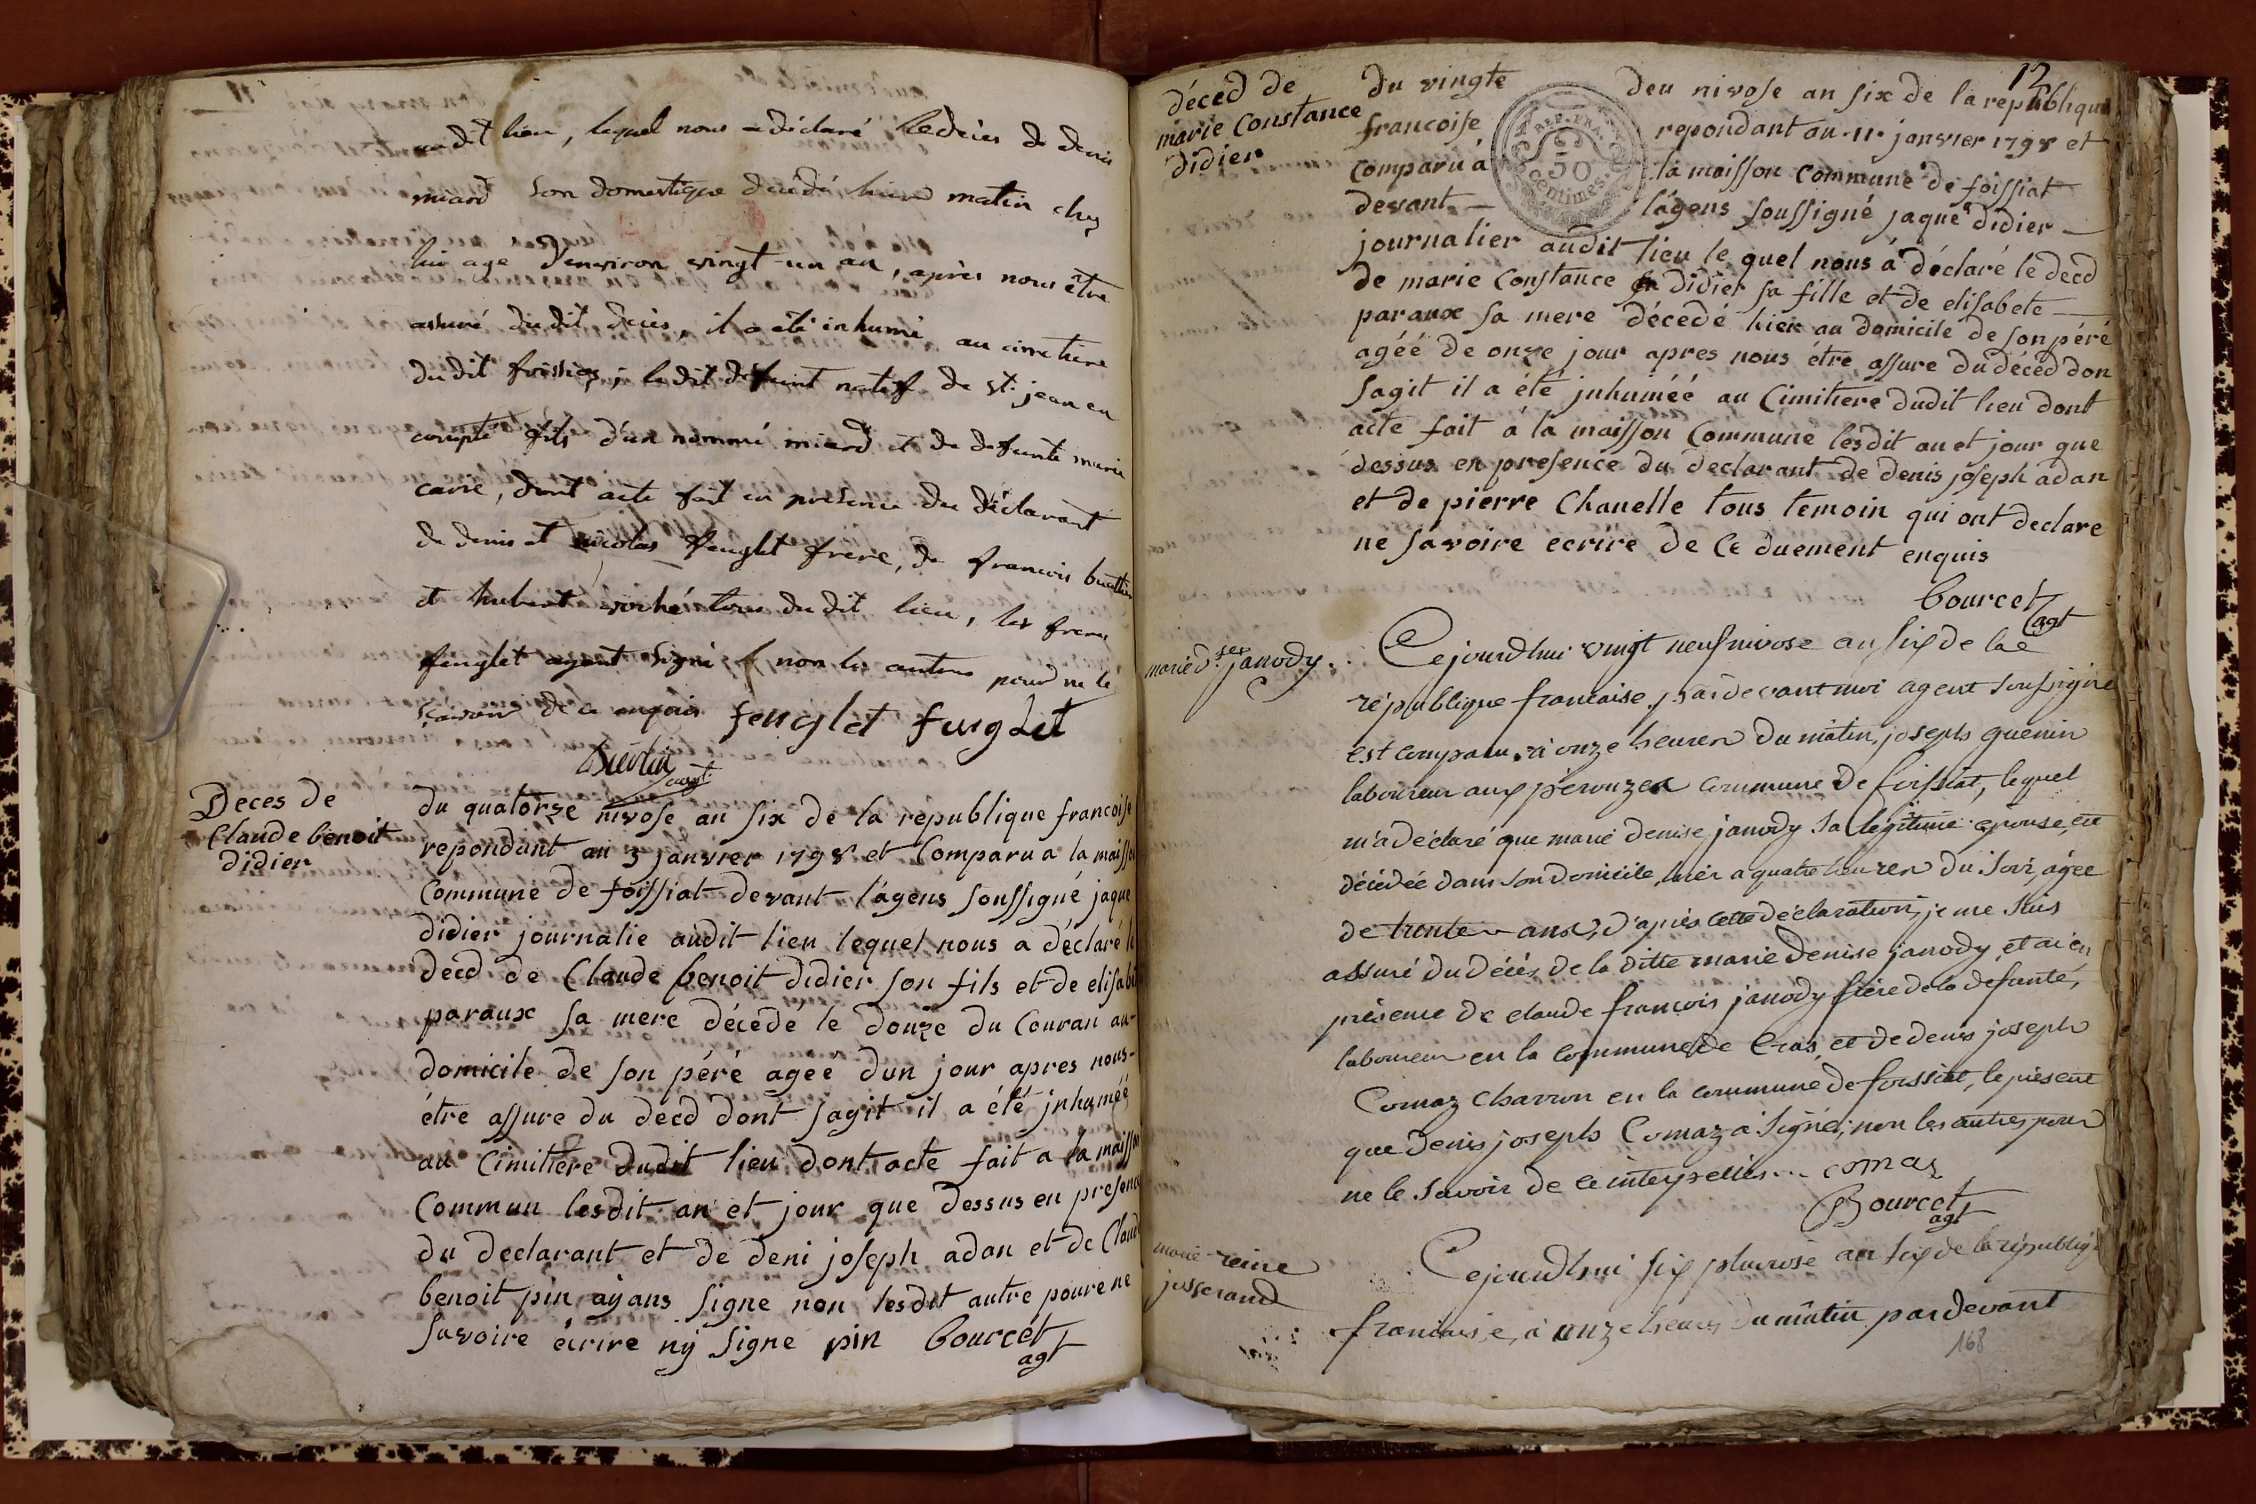 audit lieu, lequel nous a déclaré le décès de denis
miard son domestique décédé hier matin chez
lui age d'environ vingt-un an, après nous être
assuré du dit décès, il a été inhumé au cimetiere
du dit foissiat, le dit defunt natif de st. jean en
fils d'un nommé miard et de defunte marie
dont acte fait en presence du déclarant
de denis et nicolas feuglet frere, de francois
et hubert tous du dit lieu, les freres
feuglet ayant signé non les autres pour ne le
savoir de ce enquis feuglet feuglet
agt
Deces de
Claude benoit
didier
du quatorze nivose an six de la republique francoise
repondant au 3 janvier 1798 et Comparu a la maisson
Commune de foissiat devant l'agens soussigné jaque
didier journalie audit lieu lequel nous a déclaré le
deced de Claude benoit didier son fils et de elisabet
paraux sa mere décedé le douze du Couran au
domicile de son péré agée dun jour apres nous
étre assure du deced dont sagit il a été jnhuméé
au Cimitiere dudit lieu dont acte fait a la maisson
Commun lesdit an et jour que dessus en presence
du declarant et de deni joseph adan et de Claude
benoit pin ayans signe non lesdit autre poure ne
savoire écrire ny signe pin bourcet
agt
12
déced de
marie Constance
didier
du vingte deu nivose an six de la republique
francoise repondant au 11 janvier 1798 et
Comparu á la maisson commune de foissiat
devant l'ágens soussigné jaque didier
journalier audit lieu le quel nous á déclaré le deced
de marie Constance didier sa fille et de elisabete
paraux sa mere décedé hier au domicile de son péré
agéé de onze jour apres nous étre assure du déced don
sagit il a été jnhuméé au Cimitiere dudit lieu dont
acte fait á la maisson Commune lesdit an et jour que
dessus en presence du declarant de denis joseph adan
et de pierre Chanelle tous temoin qui ont declare
ne savoire ecrire de Ce duement enquis
bourcet
agt
marie dse janody
Cejourdhui vingt neuf nivose an six de la
république francaise, pardevant moi agent soussigné
est comparu à onze heures du matin, joseph guenin
laboureur aux pérouzes commune de foissiat, lequel
m'a déclaré que marie denise janody sa légitime epouse, est
décédée dans son domicile, hier a quatre heures du soir, agée
de trente ans, d'après cette déclaration, je me suis
assuré du décès de la ditte marie denise janody, et ai en
présence de claude francois janody frère de la defunte,
laboureur en la commune de Cras, et de denis joseph
Comaz charron en la commune de foissiat, le présent
que denis joseph Comaz a signé, non les autres pour
ne le savoir de ce interpellés comaz
Bourcet
agt
marie-reine
josserand
Cejourdhui six pluviose an six de la républiq
francaise, à onze heures du matin pardevant
168
REP. FRA.
50
centimes